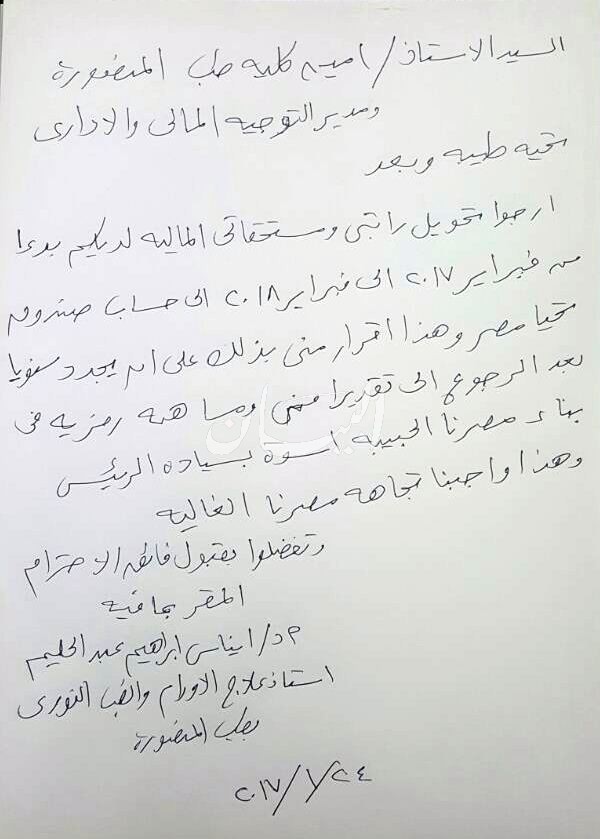 السيد الاستاذ/ امين كلية طب المنصورة
ومدير التوجيه المالى والادارى
تحيه طيبه وبعد
ارجوا تحويل راتبى ومستحقاتى الماليه لديكم بدءا
من فبراير ٢٠١٧ الى فبراير ٢٠١٨ الى حساب صندوق
تحيا مصر وهذا اقرار منى بذلك على ان يجدد سنويا
بعد الرجوع الى تقديرا منى ومساهمه رمزيه فى
بناء مصرنا الحبيبه اسوة بسياده الرئيس
وهذا واجبنا تجاهه مصرنا الغاليه
وتفضلوا بقبول فائق الاحترام
المقر بما فيه
د/ ايناس ابراهيم عبد الحليم
استاذ علاج الاورام والطب النووى
بطب المنصورة
٢٠١٧/١/٢٤